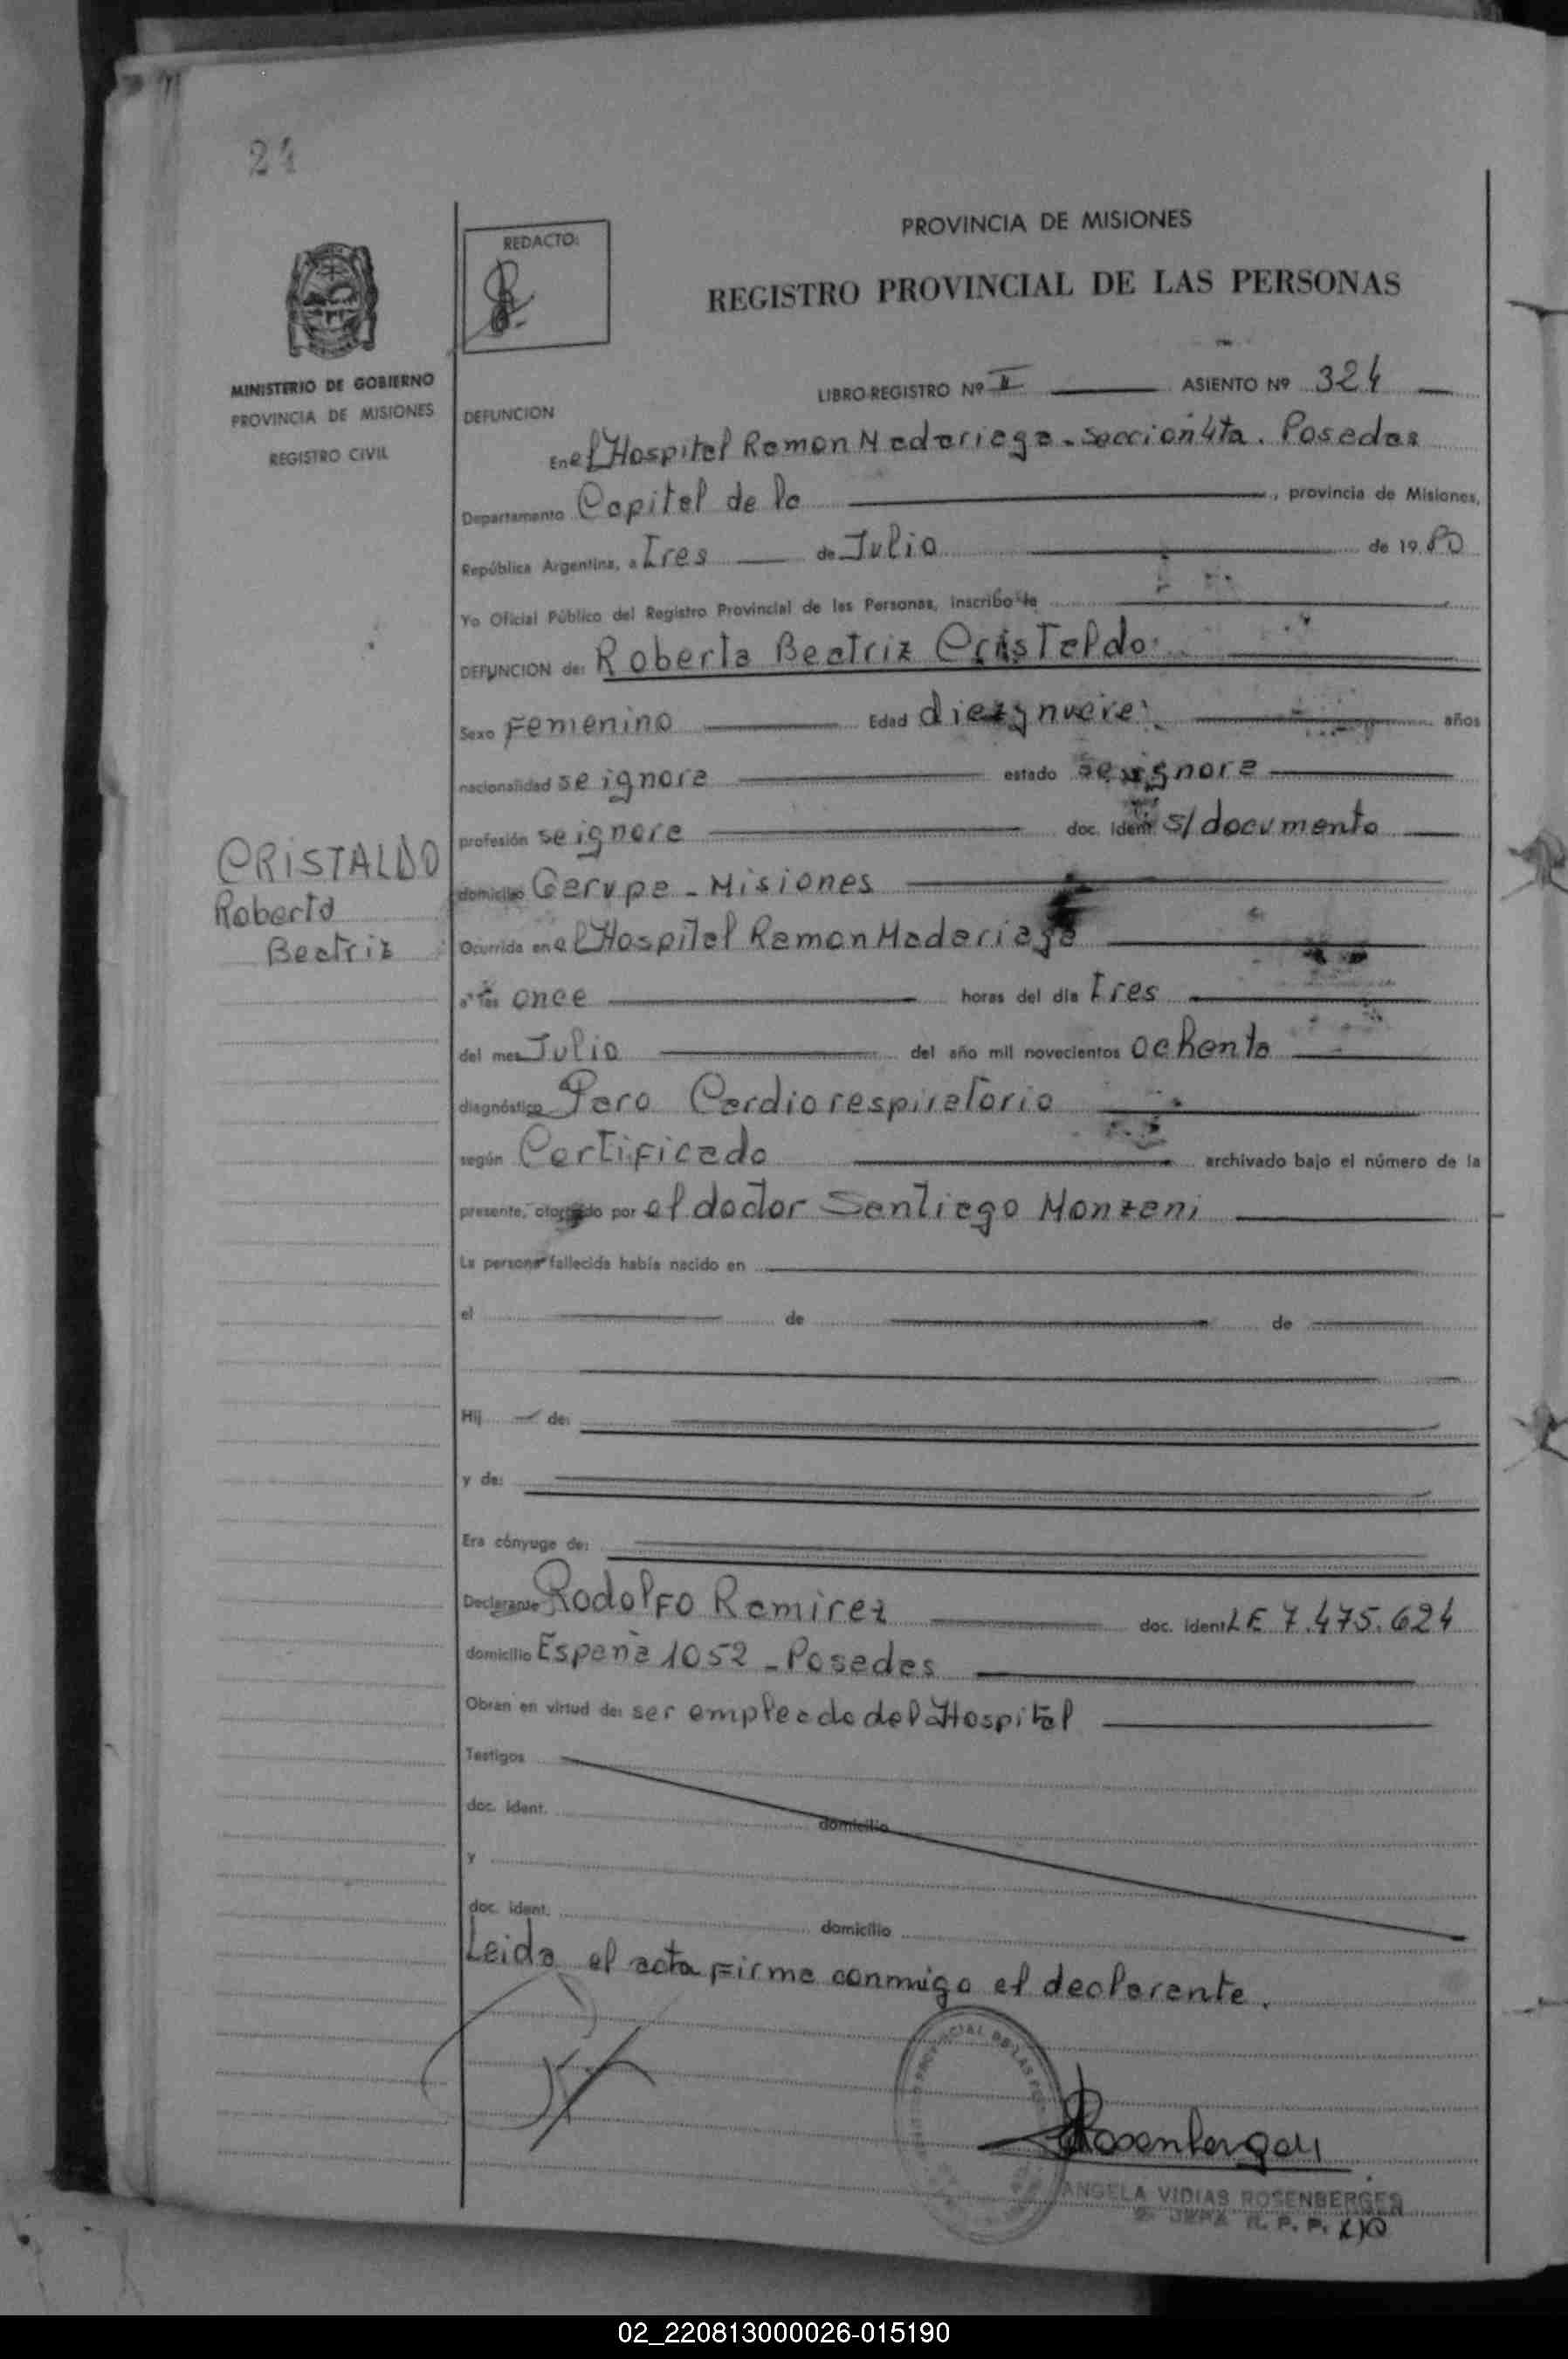 24
PROVINCIA DE MISIONES
REDACTO:
REGISTRO PROVINCIAL DE LAS PERSONAS
MINISTERIO DE GOBIERNO
PROVINCIA DE MISIONES
REGISTRO CIVIL
LIBRO-REGISTRO Nº II ASIENTO Nº 324
DEFUNCION
En el Hospital Ramon Madariaga - Sección 4ta. Posadas
Departamento Capital de la , provincia de Misiones,
República Argentina, a Tres de Julio de 19 80
Yo Oficial Público del Registro Provincial de las Personas, inscribo la
DEFUNCION de: Roberta Beatriz Cristaldo
Sexo Femenino Edad diez y nueve años
nacionalidad se ignora estado se ignora
profesión se ignora doc. ident. s/documento
CRISTALDO
Roberta
Beatriz
domicilio Garupa - Misiones
Ocurrida en el Hospital Ramon Madariaga
a las once horas del día tres
del mes Julio del año mil novecientos ochenta
diagnóstico Paro Cardiorespiratorio
según Certificado archivado bajo el número de la
presente, otorgado por el doctor Santiago Monzani
La persona fallecida había nacido en
el de de
Hij de:
y de:
Era cónyuge de:
Declarante Rodolfo Ramirez doc. ident. LE 7.475.624
domicilio España 1052 - Posadas
Obran en virtud de: ser empleado del Hospital
Testigos
doc. ident. domicilio
y
doc. ident. domicilio
Leida el acta firma conmigo el declarente.
ANGELA VIDIAS ROSENBERGER
JEFA R. P. P.
02_220813000026-015190